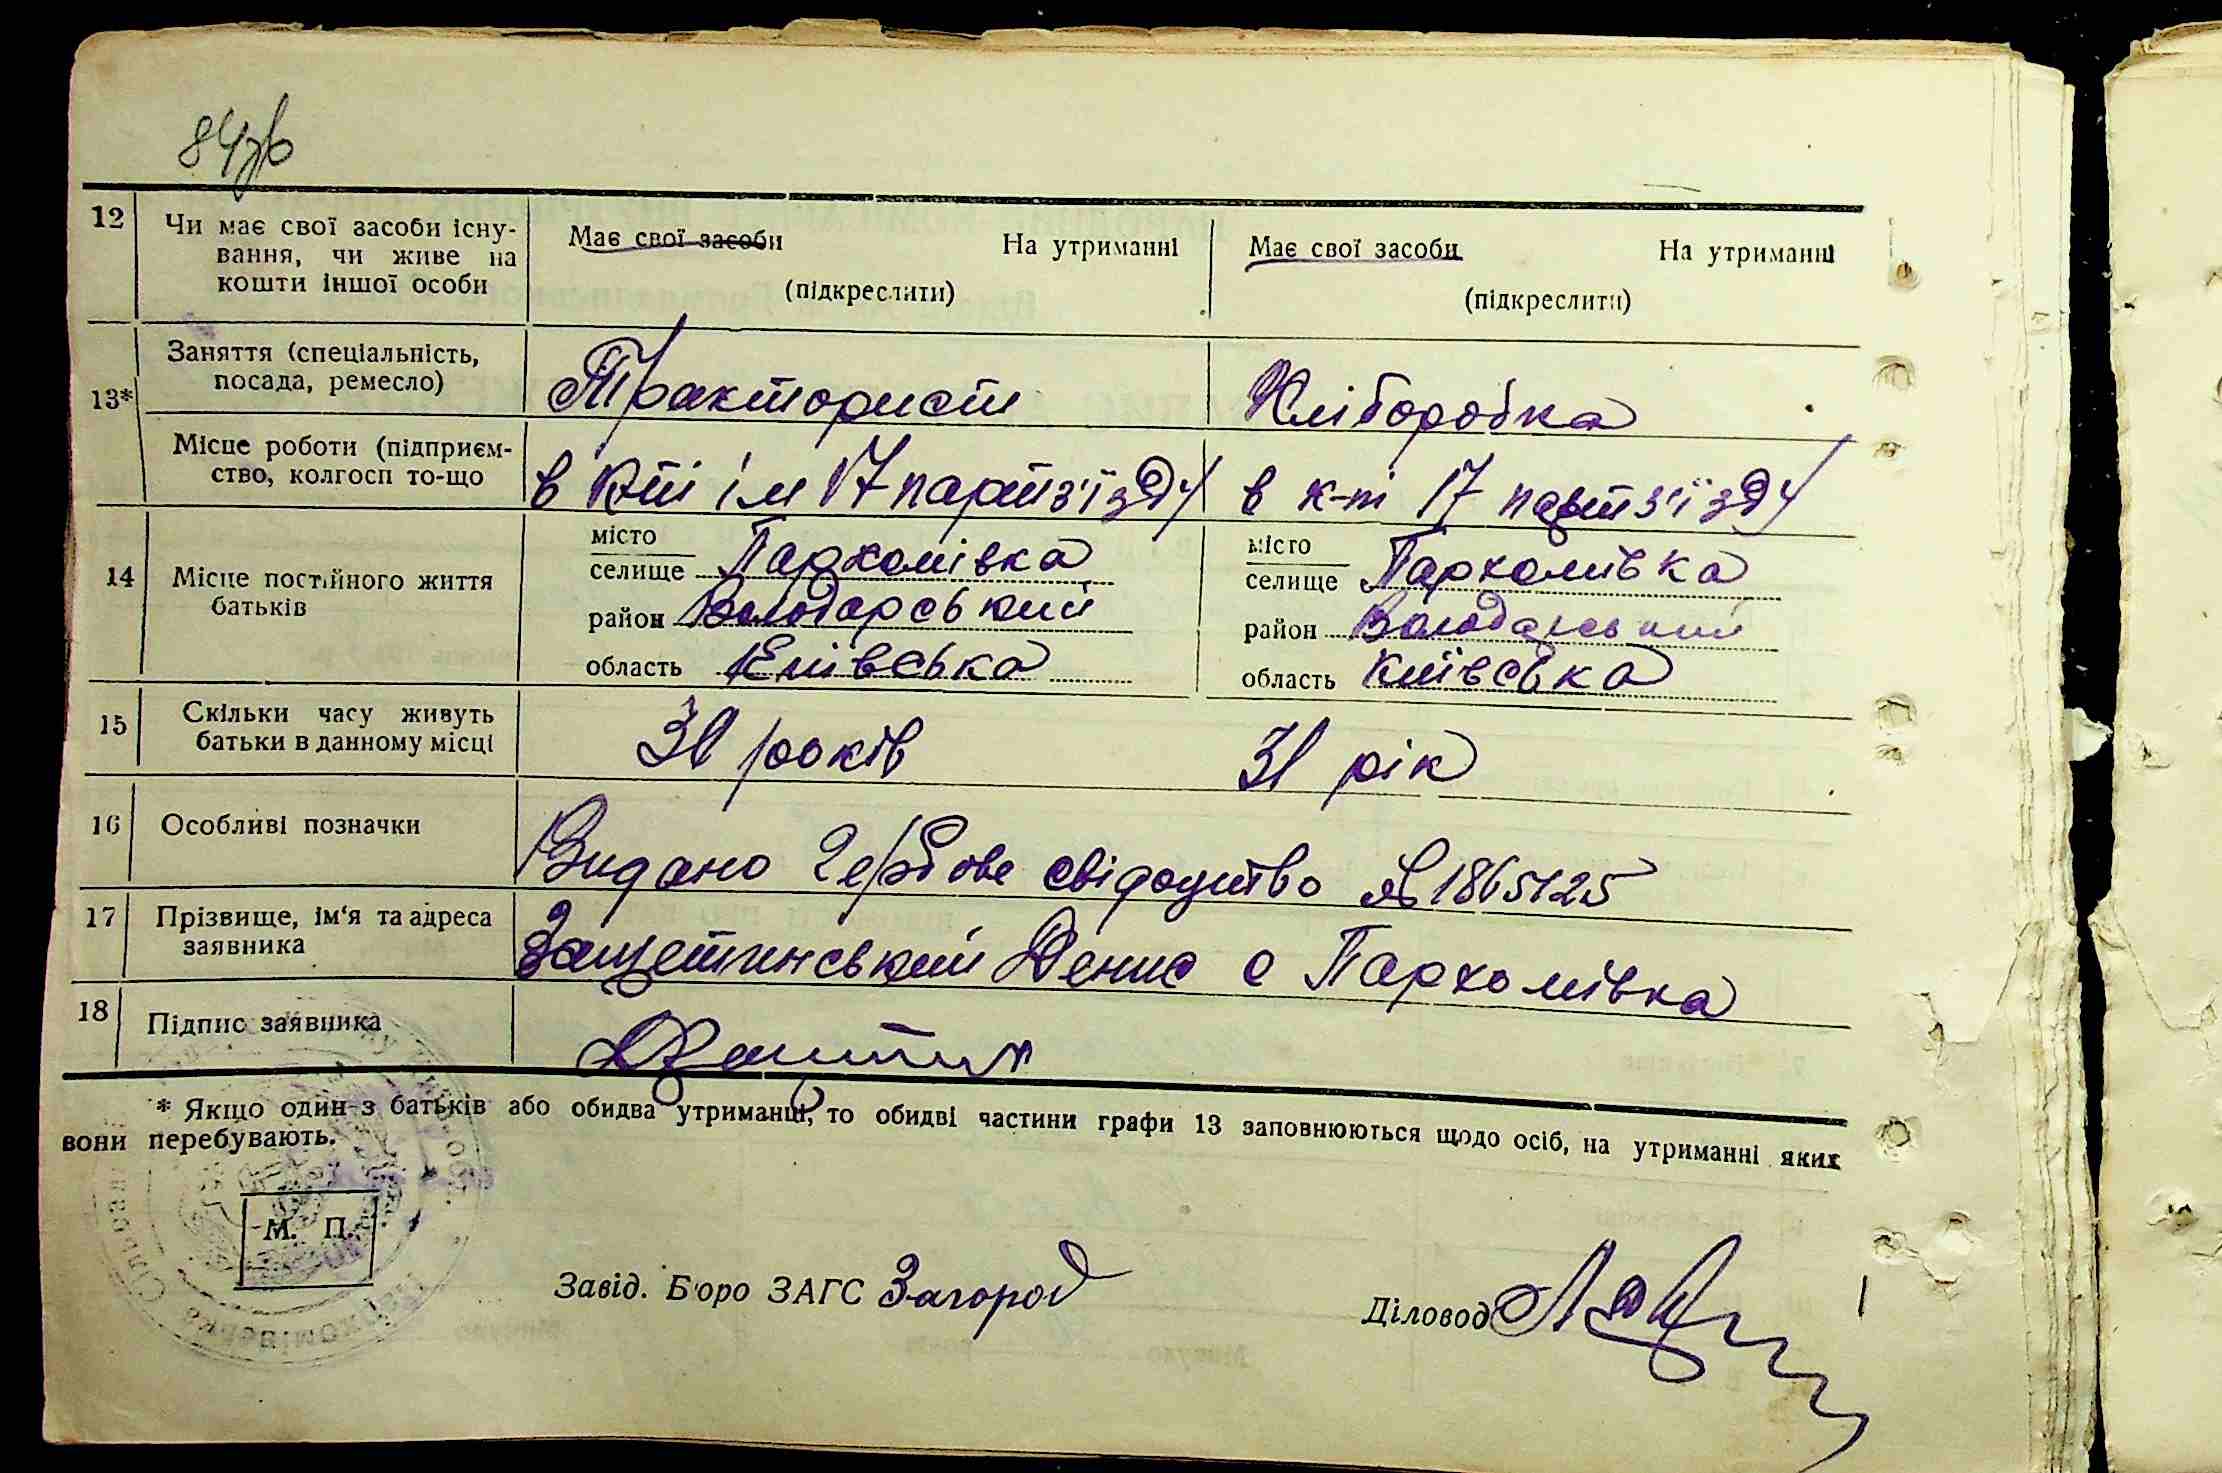 84зв
12 Чи має свої засоби існу-
вання, чи живе на
кошти іншої особи
Має свої засоби На утриманні
(підкреслити)
Має свої засоби На утриманні
(підкреслити)
13* Заняття (спеціальність,
посада, ремесло)
Тракторист
Хліборобка
Місце роботи (підприєм-
ство, колгосп то-що
в к-ті ім 17 партз'їзду
в к-ті 17 партз'їзду
14 Місце постійного життя
батьків
місто
селище Пархомівка
район Володарський
область Київська
місто
селище Пархомівка
район Володарський
область Київська
15 Скільки часу живуть
батьки в данному місці
років
31 рік
16 Особливі позначки
Видано Гербове свідоцтво
17 Прізвище, ім'я та адреса
заявника
Защетинський Денис с Пархомівка
18 Підпис заявника
* Якщо один з батьків або обидва утриманці, то обидві частини графи 13 заповнюються щодо осіб, на утриманні яких
вони перебувають.
М. П.
Завід. Бюро ЗАГС Загород
Діловод